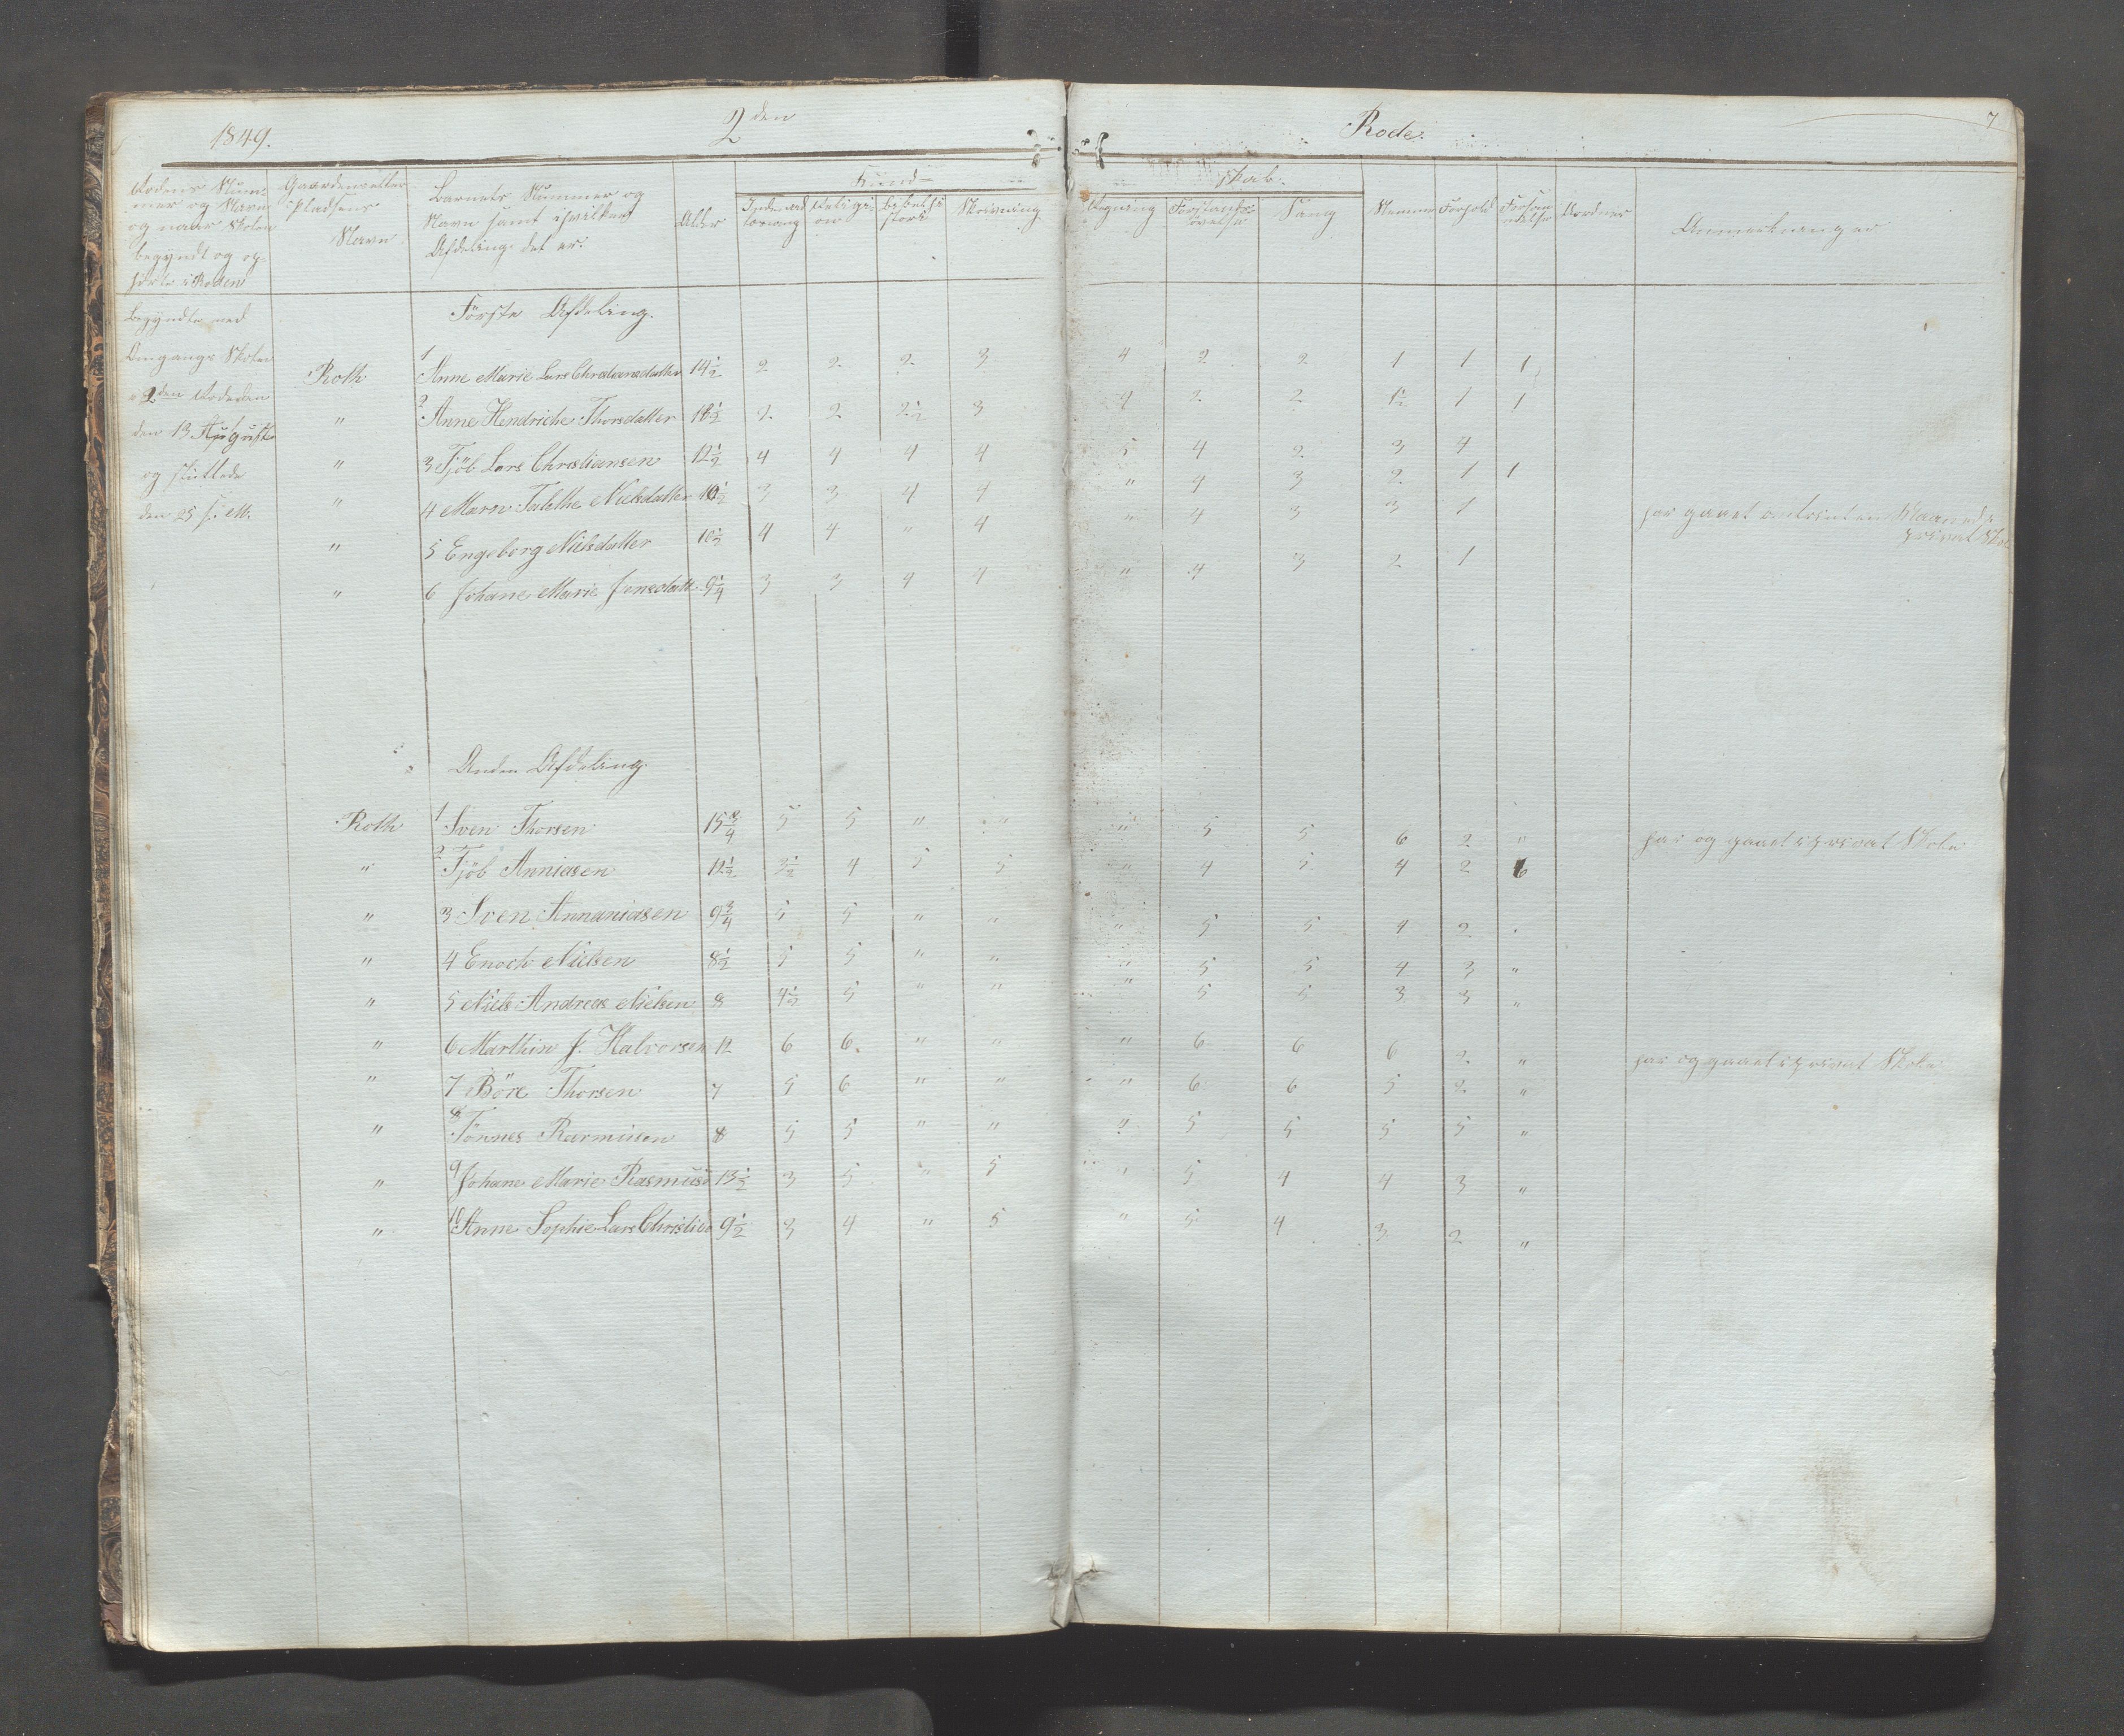 1849. 2den Rode. 7
Rodens Num-
mer og Navn
og naar Skolen
begyndt og op-
hørte i Roden
Gaardens eller
Pladsens
Navn
Barnets Nummer og
Navn samt i hvilken
Afdeling det er.
Alder
Kund- skab.
Religi-
on
Bibelhi-
storie
Skrivning
Regning
Forstandsø-
velse
Sang
Nemme
Forhold
Forsøm-
melse
Anmerkninger
Begyndte med
Omgangs Skolen
i 2den Rode den
den 13 August
og sluttede
den 25 s. M.
Første Afdeling.
Roth 1 Anne Marie Lars Christiansdatter 14½ 2 2 2 3 4 2 2 1 1 1
" 2 Anne Hendriche Thorsdatter 2 2 2½ 3 4 2 2 1½ 1 1
" 3 Tjöb Lars Christiansen 12½ 4 4 4 4 5 4 2 3 4
" 4 Maren Tabithe Nielsdatter 10½ 3 3 4 4 " 4 3 2 1 1
" 5 Engeborg Nielsdatter 10½ 4 4 " 4 " 4 3 3 1 har gaaet omtrent en Maaned i
privat Skole
" 6 Johane Marie Jensdatt. 9¼ 3 3 4 4 " 4 3 2 1
Anden Afdeling.
Roth 1 Sven Thorsen 15¾ 5 5 " " " 5 5 6 2 " har og gaaet i privat Skole
" 2 Tjöb Anniasen 12½ 3½ 4 5 5 " 4 5 4 2 6
" 3 Sven Annaniasen 9¾ 5 5 " " " 5 5 4 2 "
" 4 Enoch Nielsen 8½ 5 5 " " " 5 5 4 3 "
" 5 Niels Andreas Nielsen 8 4½ 5 " " " 5 5 3 3 "
" 6 Marthin J. Halvorsen 12 6 6 " " " 6 6 6 2 " har og gaaet i privat Skole
" 7 Böre Thorsen 7 5 6 " " " 6 6 5 2 "
" 8 Tönnes Rasmusen 8 5 5 " " " 5 5 5 5 "
" 9 Johane Marie Rasmusd 13½ 3 5 " 5 " 5 4 4 3 "
" 10 Anne Sophie Lars Christid 9½ 3 4 " 5 " 5 4 3 2 "